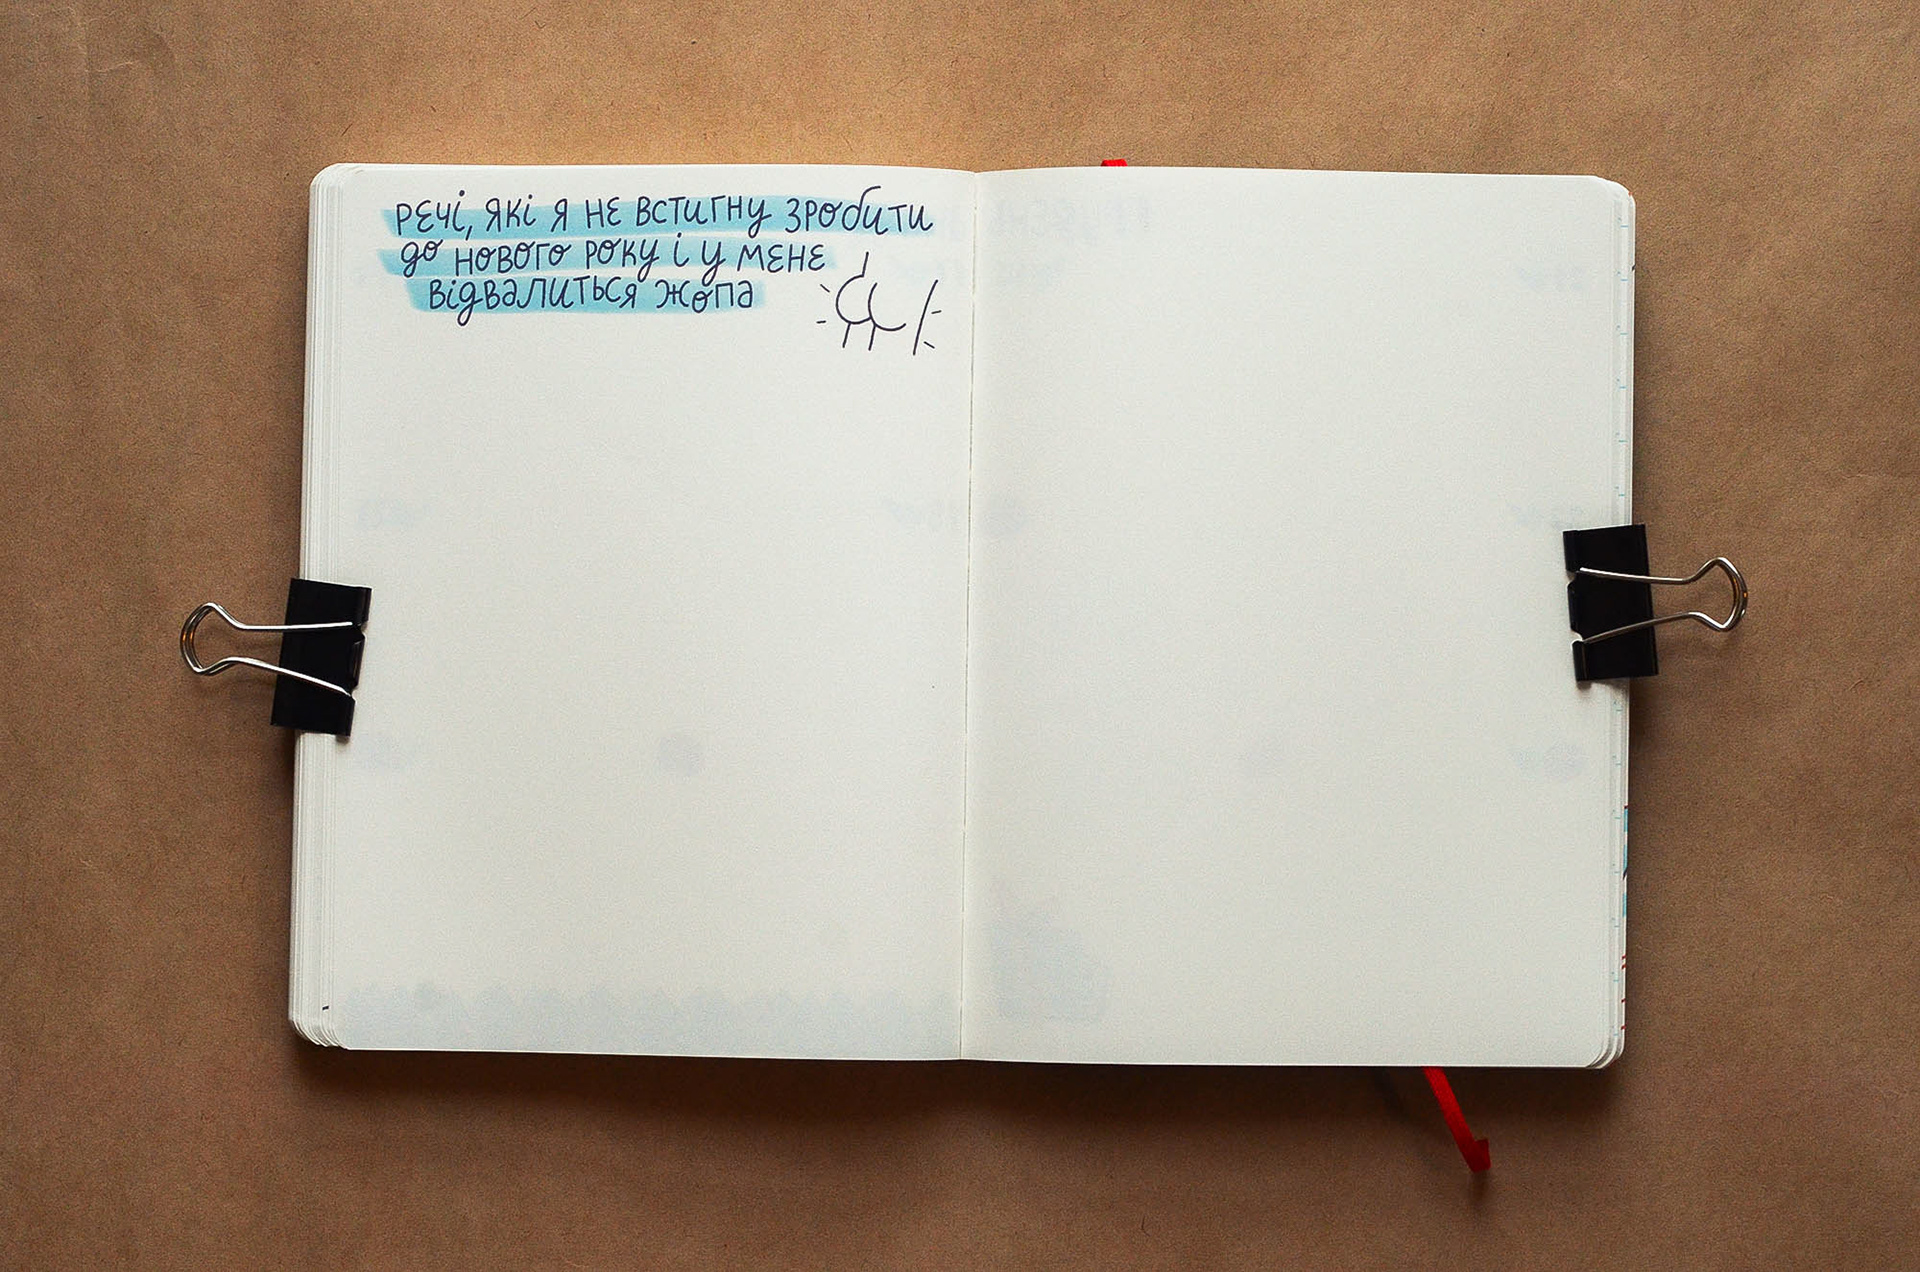 Речі, які я не встигну зробити
до нового року і у мене
відвалиться жопа